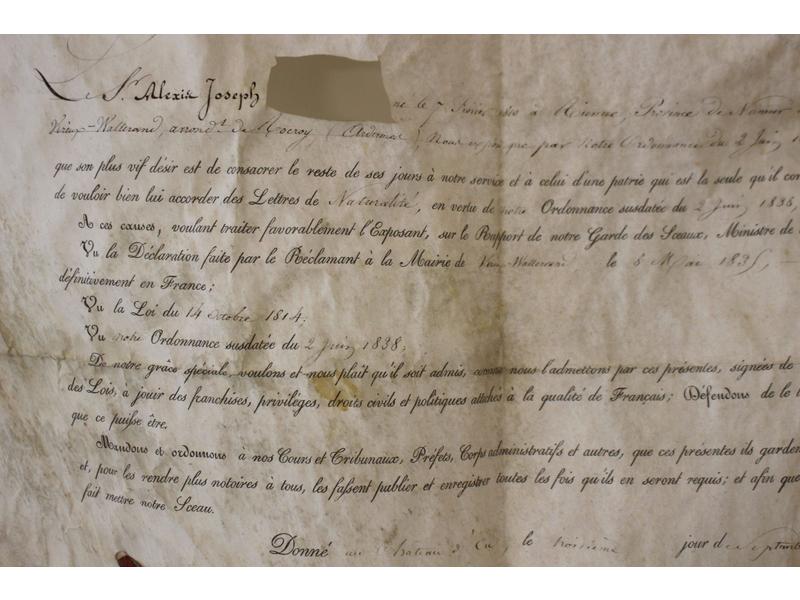 Le Sr. Alexis Joseph né le 7 à Rienne, Province de Namur
Vireux-Wallerand, arrondt. de Rocroy, (Ardennes), Nous par Notre Ordonnance du 2 Juin
que son plus vif désir est de consacrer le reste de ses jours à notre service et à celui d'une patrie qui est la seule qu'il con
de vouloir bien lui accorder des Lettres de Naturalité, en vertu de notre Ordonnance susdatée du 2 Juin 1838,
A ces causes, voulant traiter favorablement l'Exposant, sur le Rapport de notre Garde des Sceaux, Ministre de
Vu la Déclaration faite par le Réclamant à la Mairie de Wallerand le 8 Mai 183
définitivement en France;
Vu la Loi du 14 octobre 1814;
Vu notre Ordonnance susdatée du 2 Juin 1838;
De notre grâce spéciale, voulons et nous plaît qu'il soit admis, comme nous l'admettons par ces présentes, signées de
des Lois, à jouir des franchises, priviléges, droits civils et politiques attachés à la qualité de Français; Défendons de le t
que ce puisse être.
Mandons et ordonnons à nos Cours et Tribunaux, Préfets, Corps administratifs et autres, que ces présentes ils garden
et, pour les rendre plus notoires à tous, les fassent publier et enregistrer toutes les fois qu'ils en seront requis; et afin que
fait mettre notre Sceau.
Donné au Château d'Eu, le troisième jour de Septemb